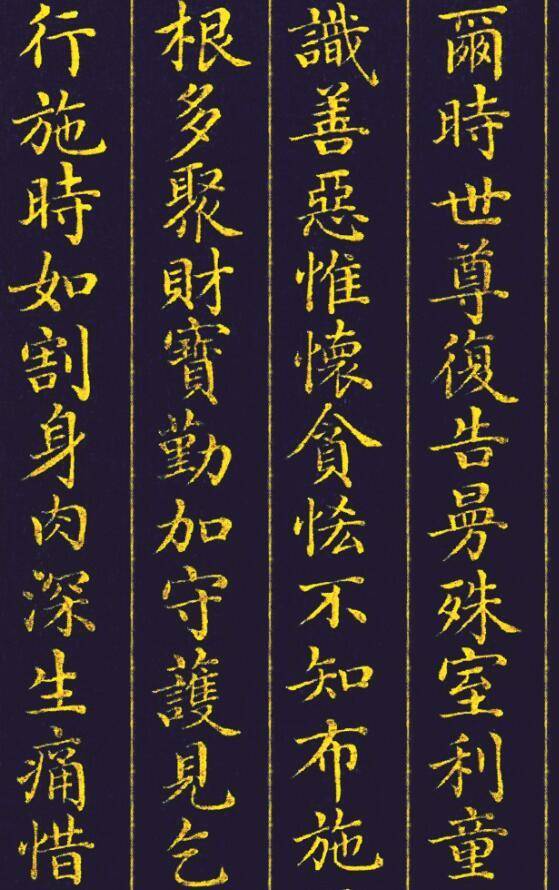 爾時世尊復告曼殊室利童
識善惡惟懷貪恡不知布施
根多聚財寶勤加守護見乞
行施時如割身肉深生痛惜